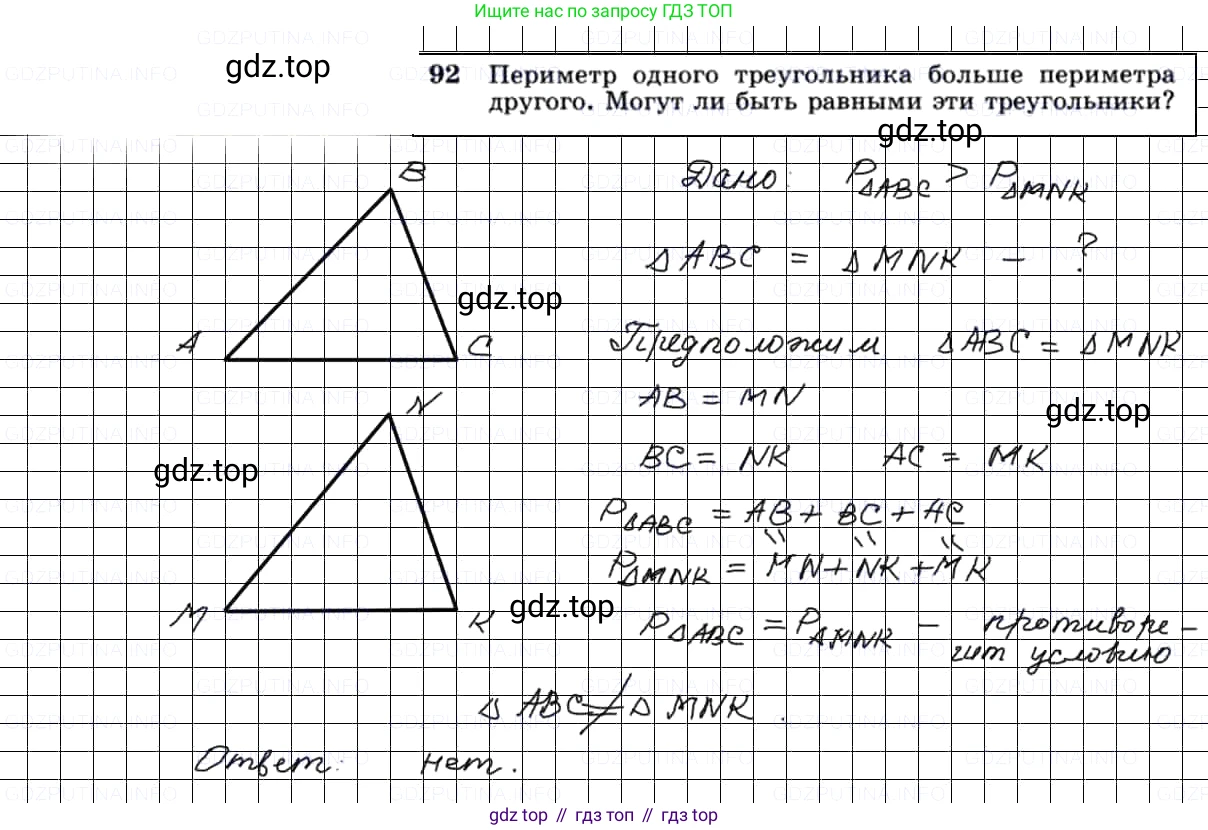 Ищите нас по запросу ГДЗ ТОП
92 Периметр одного треугольника больше периметра
другого. Могут ли быть равными эти треугольники?
gdz.top
gdz.top
B
Дано: P△ABC > P△MNK
△ABC = △MNK - ?
gdz.top
A
C
Предположим △ABC = △MNK
N
AB = MN
gdz.top
BC = NK AC = MK
gdz.top
P△ABC = AB + BC + AC
P△MNK = MN + NK + MK
M
K
gdz.top
P△ABC = P△MNK - противоре-
чит условию
△ABC ≠ △MNK.
Ответ: нет.
gdz top // гдз топ // гдз top